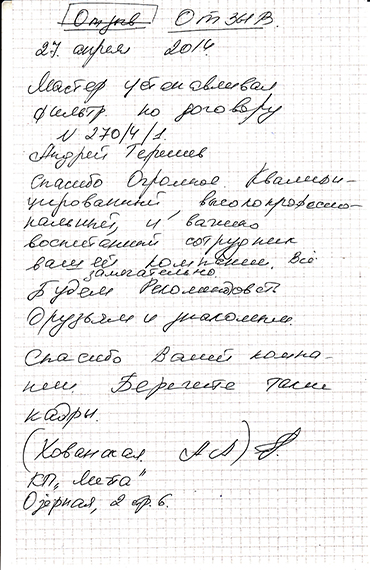 Отзыв ОТЗЫВ.
27. апреля 2014.
Мастер устанавливал
фильтр по договору
N 270/4/1.
Андрей Терешев
Спасибо Огромное. Квалифи-
цированный, высокопрофессио-
нальный, и важно
воспитанный сотрудник
вашей компании. Всё
замечательно.
Будем Рекомендовать
Друзьям и знакомым.
Спасибо Вашей компа-
нии. Берегите такие
кадры.
(Хованская АА)
КП "Мета"
Озёрная, 2 стр. 6.